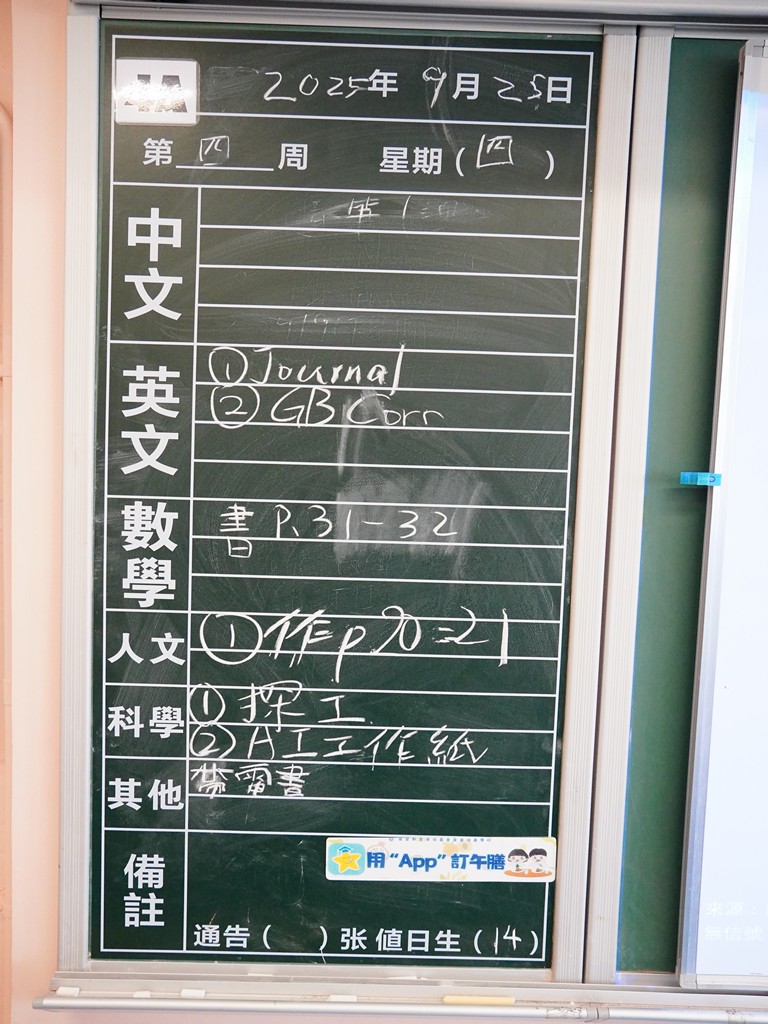 4A
2025年 9月25日
第 四 周 星期(四)
中文
第1
英文
①Journal
② GB Corr
數學
書 P.31-32
日
人文
①作p20-21
科學
①探工
②AI工作紙
其他
帶電書
備註
用“App”訂午膳
通告( )张 值日生(14)
來源：
無信號